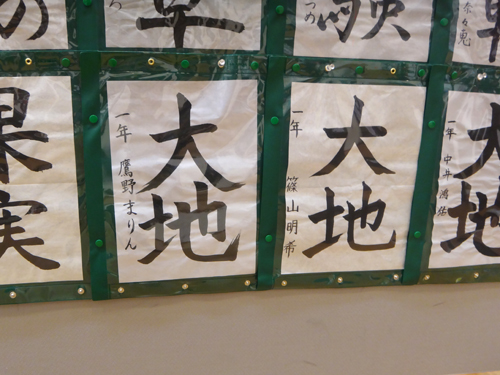 験
果実
大地
一年 鷹野まりん
大地
一年 篠山明希
大地
一年 中井